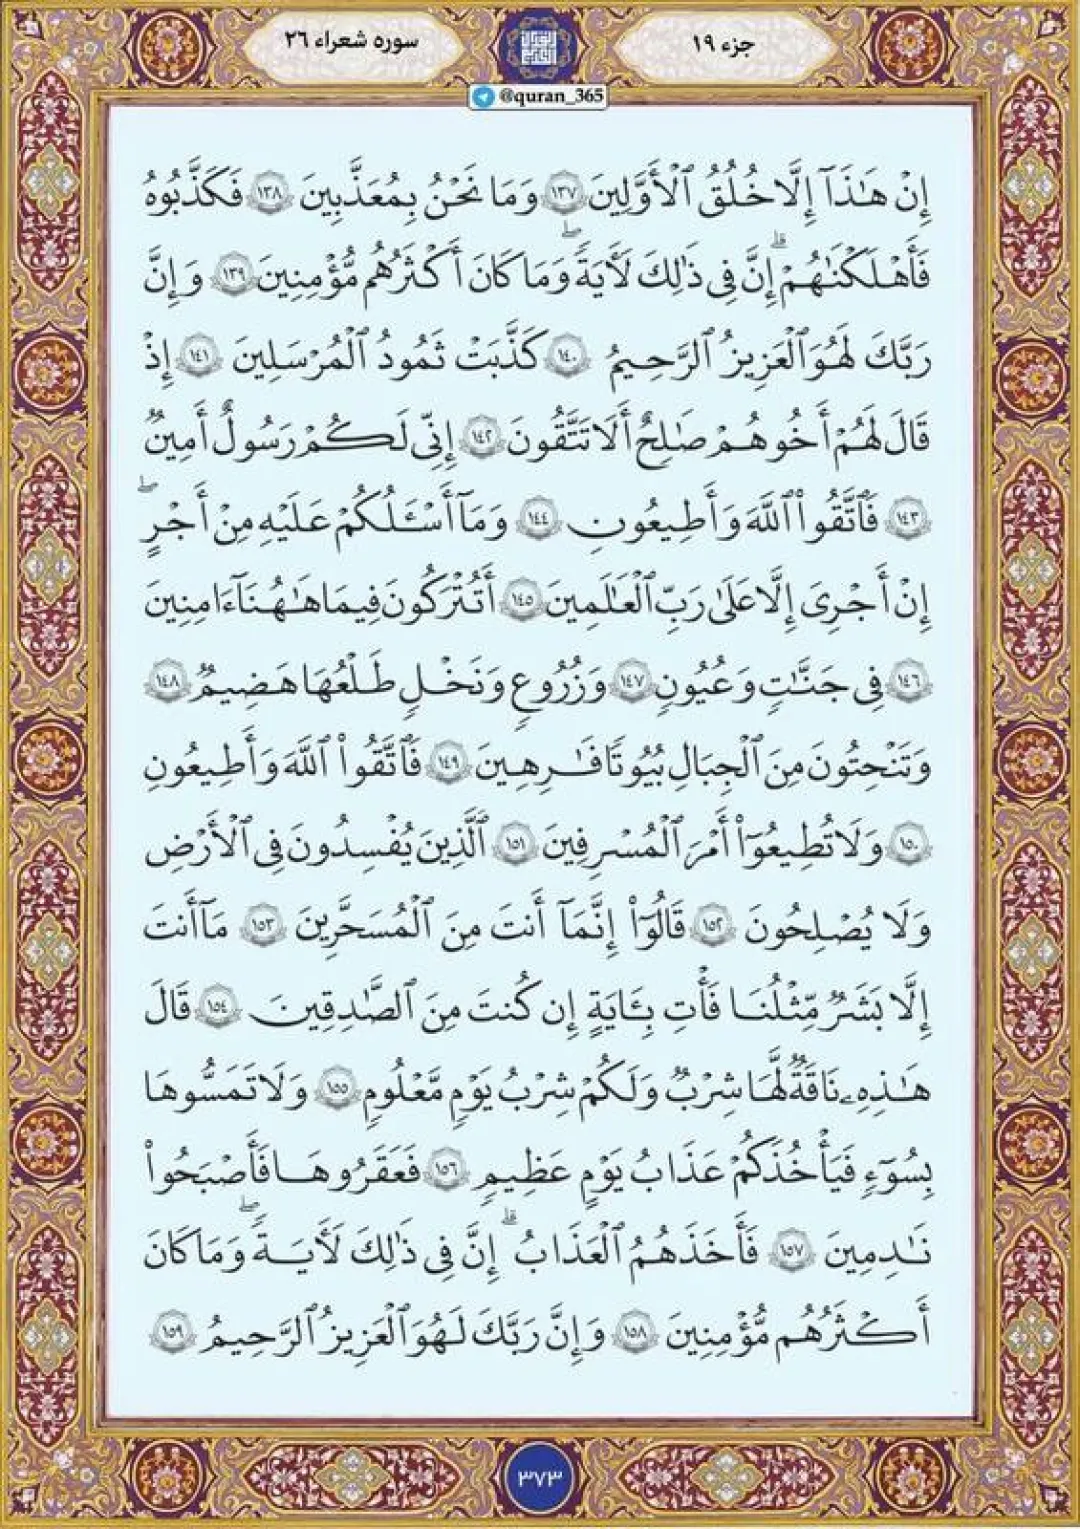 جزء ١٩
سوره شعراء ٢٦
@quran_365
إِنْ هَـٰذَآ إِلَّا خُلُقُ ٱلْأَوَّلِينَ ١٣٧ وَمَا نَحْنُ بِمُعَذَّبِينَ ١٣٨ فَكَذَّبُوهُ
فَأَهْلَكْنَـٰهُمْ ۗ إِنَّ فِى ذَٰلِكَ لَـَٔايَةً ۖ وَمَا كَانَ أَكْثَرُهُم مُّؤْمِنِينَ ١٣٩ وَإِنَّ
رَبَّكَ لَهُوَ ٱلْعَزِيزُ ٱلرَّحِيمُ ١٤٠ كَذَّبَتْ ثَمُودُ ٱلْمُرْسَلِينَ ١٤١ إِذْ
قَالَ لَهُمْ أَخُوهُمْ صَـٰلِحٌ أَلَا تَتَّقُونَ ١٤٢ إِنِّى لَكُمْ رَسُولٌ أَمِينٌ
١٤٣ فَٱتَّقُوا۟ ٱللَّهَ وَأَطِيعُونِ ١٤٤ وَمَآ أَسْـَٔلُكُمْ عَلَيْهِ مِنْ أَجْرٍ ۖ
إِنْ أَجْرِىَ إِلَّا عَلَىٰ رَبِّ ٱلْعَـٰلَمِينَ ١٤٥ أَتُتْرَكُونَ فِيمَا هَـٰهُنَآ ءَامِنِينَ
١٤٦ فِى جَنَّـٰتٍ وَعُيُونٍ ١٤٧ وَزُرُوعٍ وَنَخْلٍ طَلْعُهَا هَضِيمٌ ١٤٨
وَتَنْحِتُونَ مِنَ ٱلْجِبَالِ بُيُوتًا فَـٰرِهِينَ ١٤٩ فَٱتَّقُوا۟ ٱللَّهَ وَأَطِيعُونِ
١٥٠ وَلَا تُطِيعُوٓا۟ أَمْرَ ٱلْمُسْرِفِينَ ١٥١ ٱلَّذِينَ يُفْسِدُونَ فِى ٱلْأَرْضِ
وَلَا يُصْلِحُونَ ١٥٢ قَالُوٓا۟ إِنَّمَآ أَنتَ مِنَ ٱلْمُسَحَّرِينَ ١٥٣ مَآ أَنتَ
إِلَّا بَشَرٌ مِّثْلُنَا فَأْتِ بِـَٔايَةٍ إِن كُنتَ مِنَ ٱلصَّـٰدِقِينَ ١٥٤ قَالَ
هَـٰذِهِۦ نَاقَةٌ لَّهَا شِرْبٌ وَلَكُمْ شِرْبُ يَوْمٍ مَّعْلُومٍ ١٥٥ وَلَا تَمَسُّوهَا
بِسُوٓءٍ فَيَأْخُذَكُمْ عَذَابُ يَوْمٍ عَظِيمٍ ١٥٦ فَعَقَرُوهَا فَأَصْبَحُوا۟
نَـٰدِمِينَ ١٥٧ فَأَخَذَهُمُ ٱلْعَذَابُ ۗ إِنَّ فِى ذَٰلِكَ لَـَٔايَةً ۖ وَمَا كَانَ
أَكْثَرُهُم مُّؤْمِنِينَ ١٥٨ وَإِنَّ رَبَّكَ لَهُوَ ٱلْعَزِيزُ ٱلرَّحِيمُ ١٥٩
٣٧٣